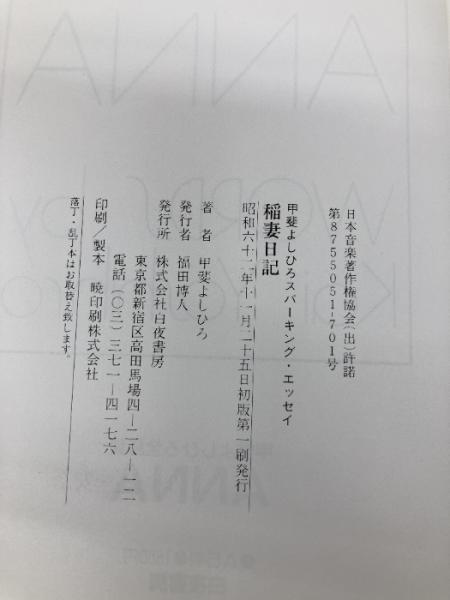 日本音楽著作権協会(出)許諾
第8755051-701号
甲斐よしひろスパーキング・エッセイ
稲妻日記
昭和六十二年十一月二十五日初版第一刷発行
著者 甲斐よしひろ
発行者 福田博人
発行所 株式会社白夜書房
東京都新宿区高田馬場四—二八—一二
電話(〇三)三七一—四一七六
印刷/製本 暁印刷株式会社
落丁・乱丁本はお取替え致します。